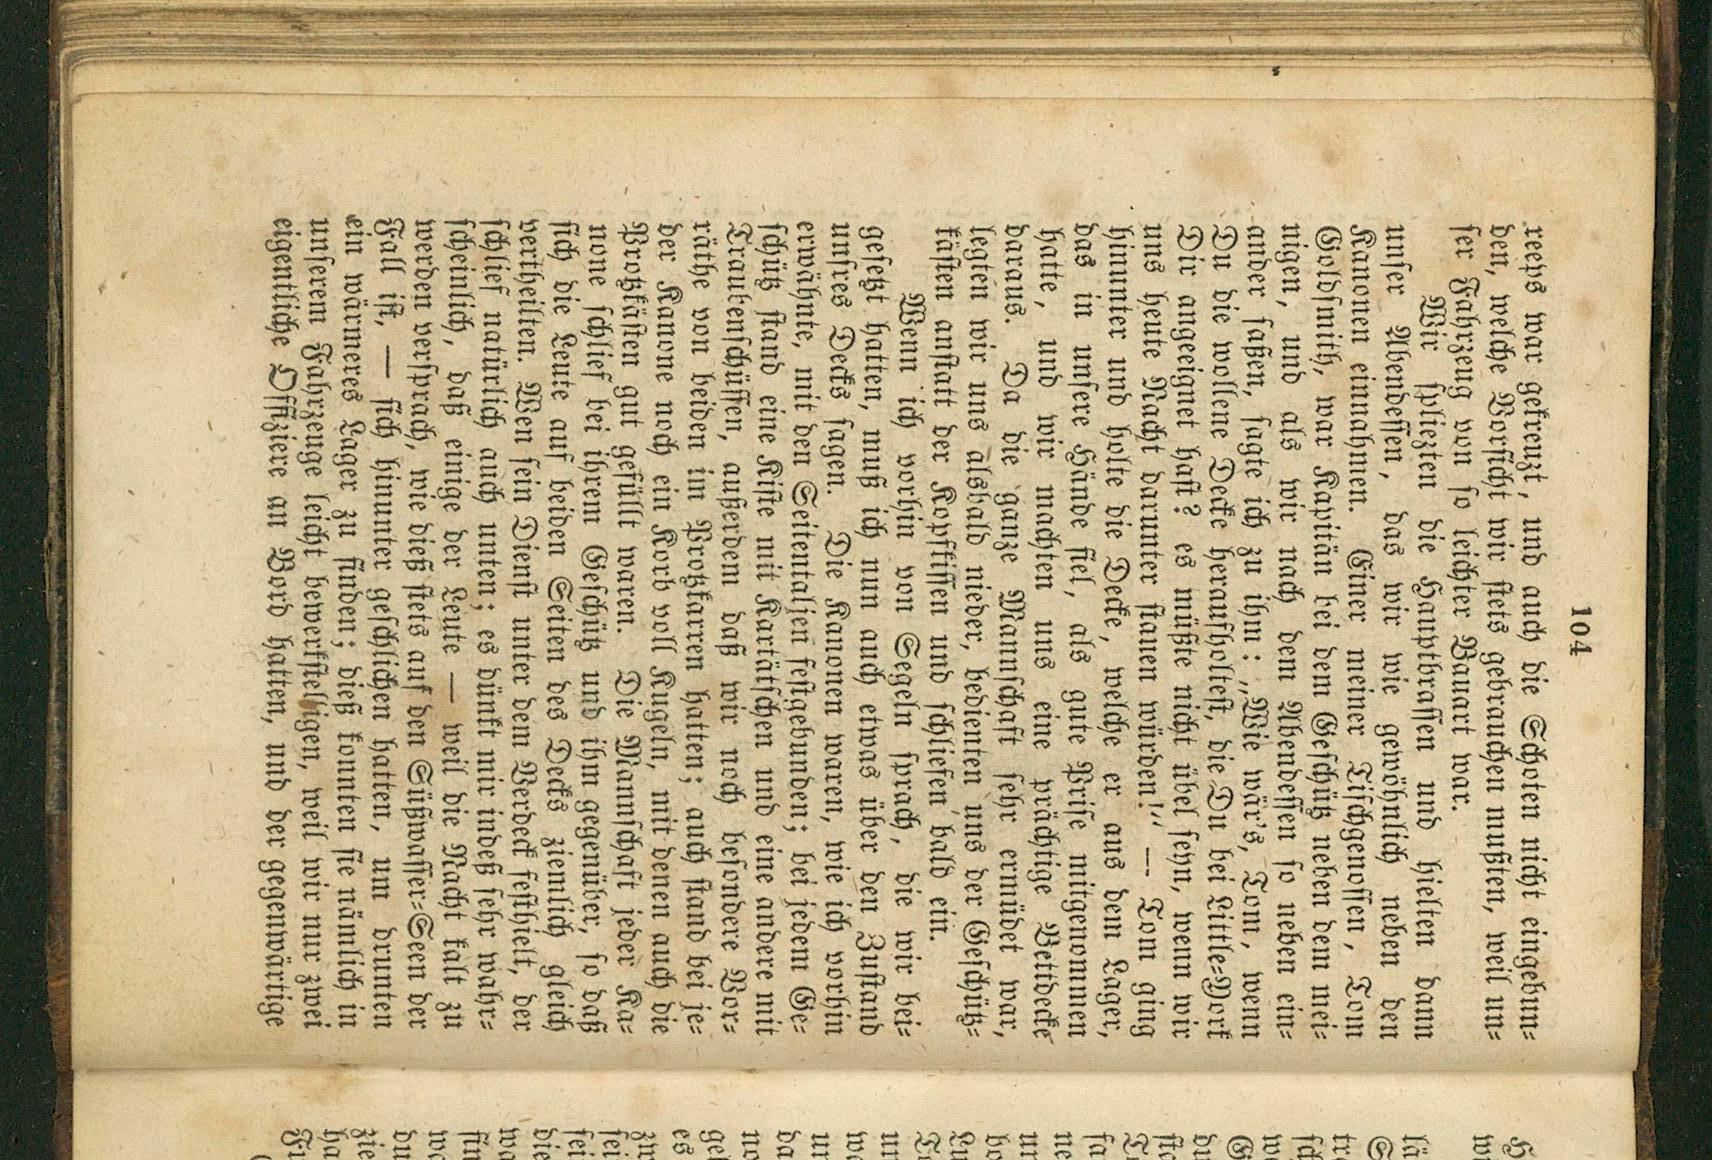 104
reeps war gekreuzt, und auch die Schoten nicht eingebun-
den, welche Vorsicht wir stets gebrauchen mußten, weil un-
ser Fahrzeug von so leichter Bauart war.
Wir spliezten die Hauptbrassen und hielten dann
unser Abendessen, das wir wie gewöhnlich neben den
Kanonen einnahmen. Einer meiner Tischgenossen, Tom
Goldsmith, war Kapitän bei dem Geschütz neben dem mei-
nigen, und als wir nach dem Abendessen so neben ein-
ander saßen, sagte ich zu ihm: „Wie wär's, Tom, wenn
Du die wollene Decke heraufholtest, die Du bei Little-York
Dir angeeignet hast? es müßte nicht übel seyn, wenn wir
uns heute Nacht darunter stauen würden!“ — Tom ging
hinunter und holte die Decke, welche er aus dem Lager,
das in unsere Hände fiel, als gute Prise mitgenommen
hatte, und wir machten uns eine prächtige Bettdecke
daraus. Da die ganze Mannschaft sehr ermüdet war,
legten wir uns alsbald nieder, bedienten uns der Geschütz-
kästen anstatt der Kopfkissen und schliefen bald ein.
Wenn ich vorhin von Segeln sprach, die wir bei-
gesetzt hatten, muß ich nun auch etwas über den Zustand
unsres Decks sagen. Die Kanonen waren, wie ich vorhin
erwähnte, mit den Seitentalien festgebunden; bei jedem Ge-
schütz stand eine Kiste mit Kartätschen und eine andere mit
Traubenschüssen, außerdem daß wir noch besondere Vor-
räthe von beiden im Protzkarren hatten; auch stand bei je-
der Kanone noch ein Korb voll Kugeln, mit denen auch die
Protzkästen gut gefüllt waren. Die Mannschaft jeder Ka-
none schlief bei ihrem Geschütz und ihm gegenüber, so daß
sich die Leute auf beiden Seiten des Decks ziemlich gleich
vertheilten. Wen sein Dienst unter dem Verdeck festhielt, der
schlief natürlich auch unten; es dünkt mir indeß sehr wahr-
scheinlich, daß einige der Leute — weil die Nacht kalt zu
werden versprach, wie dieß stets auf den Süßwasser-Seen der
Fall ist, — sich hinunter geschlichen hatten, um drunten
ein wärmeres Lager zu finden; dieß konnten sie nämlich in
unserem Fahrzeuge leicht bewerkstelligen, weil wir nur zwei
eigentliche Offiziere an Bord hatten, und der gegenwärtige